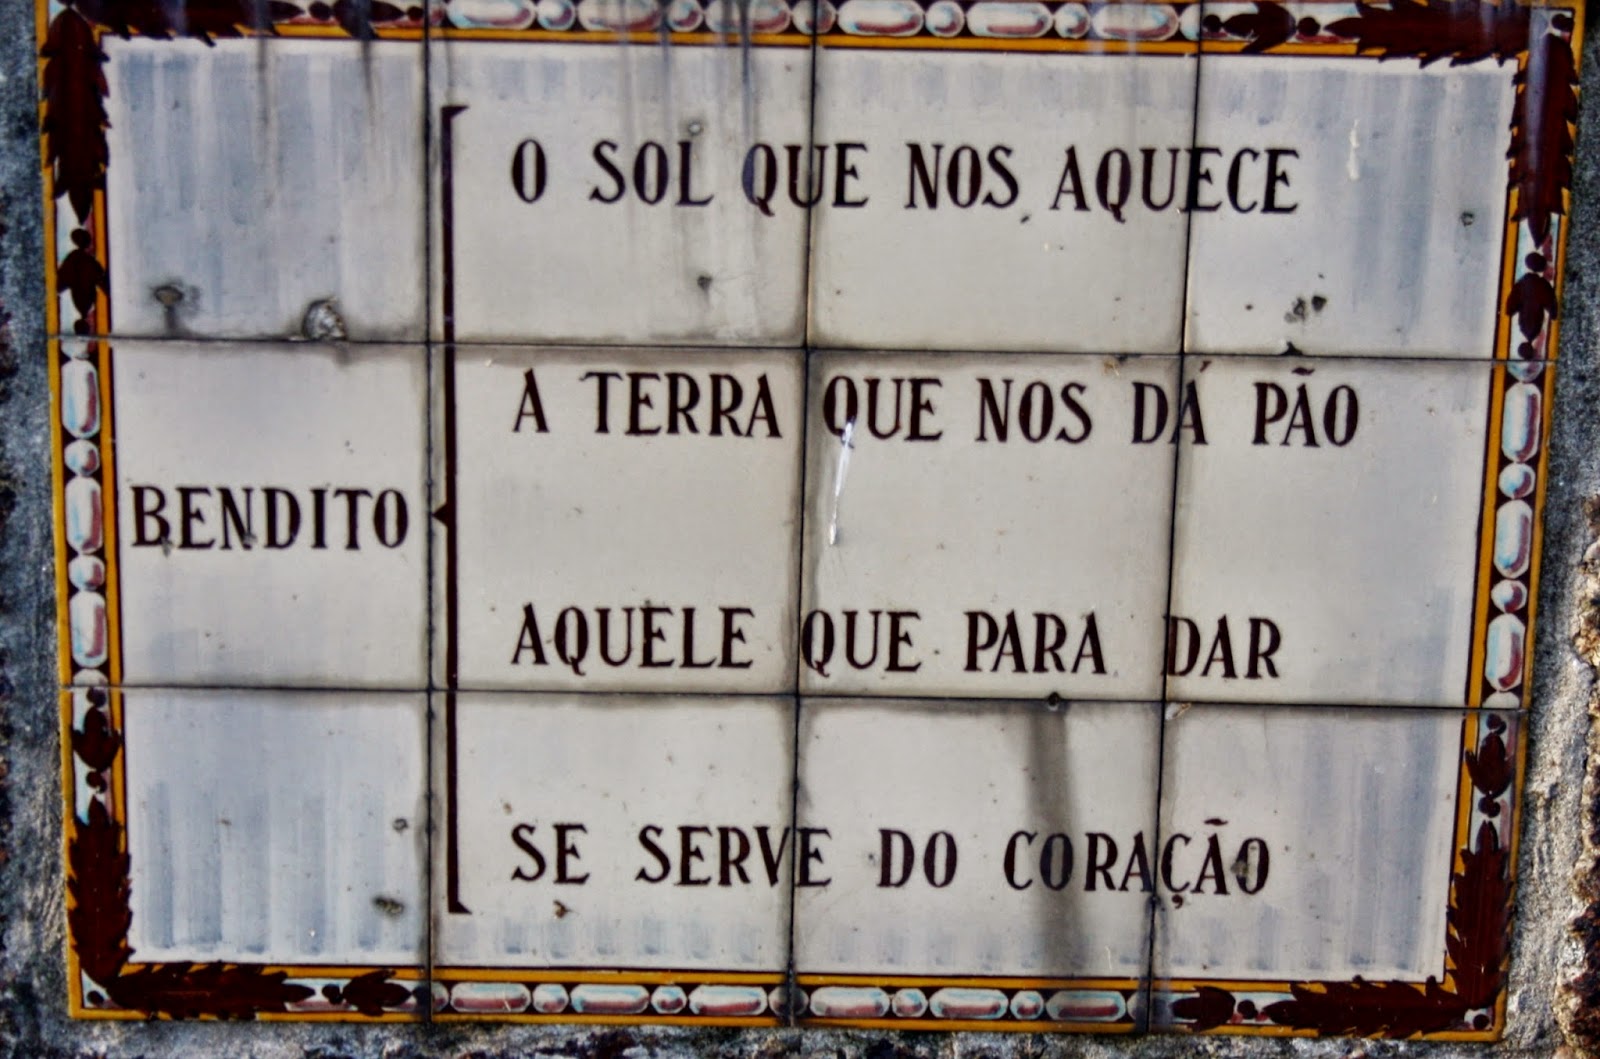 O SOL QUE NOS AQUECE
A TERRA QUE NOS DÁ PÃO
BENDITO
AQUELE QUE PARA DAR
SE SERVE DO CORAÇÃO